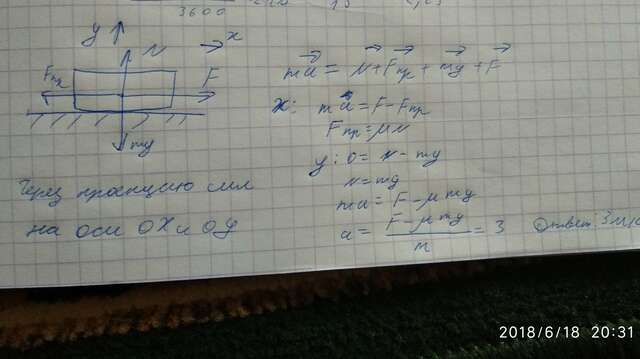 3600
y
N
x
Fпр
F
mg
ma = N + Fпр + mg + F
x: ma = F - Fпр
Fпр = μN
y: 0 = N - mg
N = mg
ma = F - μmg
a = (F - μmg)/m = 3
Ответ: 3м/с
Через проекцию сил
на оси OX и OY
2018/6/18 20:31